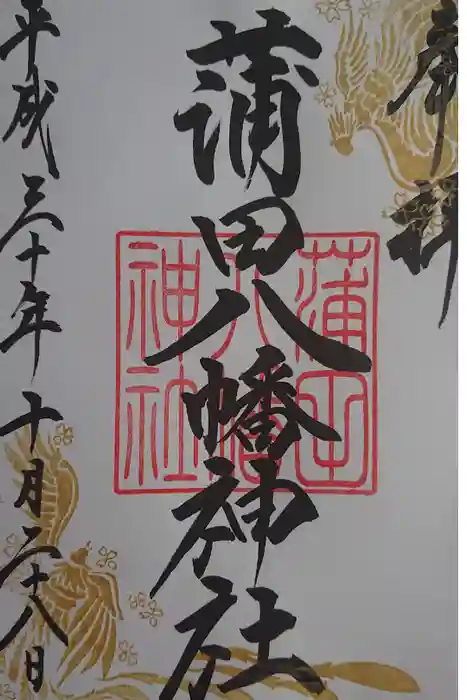 奉拝
蒲田八幡神社
平成三十年十月二十八日
蒲田
八幡
神社